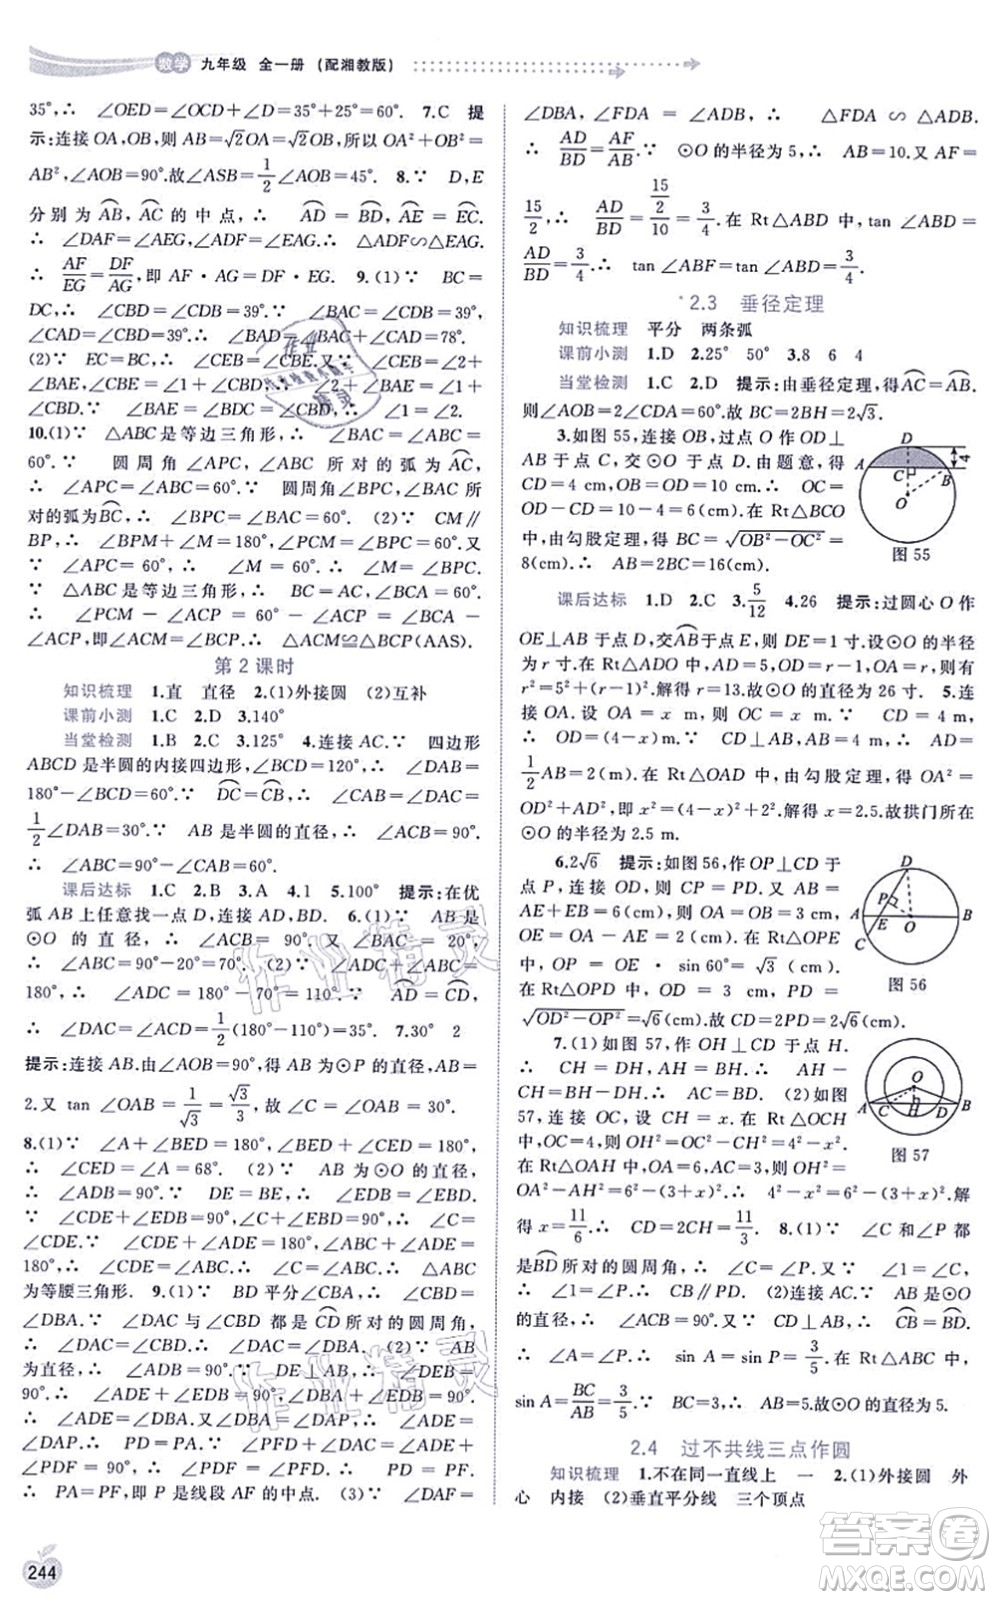 数学 九年级 全一册 (配湘教版)
35°,∴ ∠OED=∠OCD+∠D=35°+25°=60°. 7.C 提
示:连接OA,OB,则AB=√2OA=√2OB,所以OA²+OB²=
AB²,∠AOB=90°.故∠ASB=1/2∠AOB=45°. 8.∵ D,E
分别为AB,AC的中点,∴ AD=BD,AE=EC.
∴ ∠DAF=∠AEG,∠ADF=∠EAG.∴ △ADF∽△EAG.
∴ AF/EG=DF/AG,即AF·AG=DF·EG. 9.(1)∵ BC=
DC,∴ ∠CBD=∠CDB=39°.∵ ∠BAC=∠CDB=39°,
∠CAD=∠CBD=39°,∴ ∠BAD=∠BAC+∠CAD=78°.
(2)∵ EC=BC,∴ ∠CBE=∠CEB.∵ ∠CBE=∠1+
∠CBD,∠CEB=∠2+∠BAC,∴ ∠1+∠CBD=∠2+
∠BAC.又∵ ∠BAC=∠CBD,∴ ∠1=∠2.
10.(1)∵ △ABC是等边三角形,∴ ∠BAC=∠ABC=
60°.∵ 圆周角∠APC,∠ABC所对的弧为AC,
∴ ∠APC=∠ABC=60°.∵ 圆周角∠BPC,∠BAC所
对的弧为BC,∴ ∠BPC=∠BAC=60°. (2)∵ CM∥
BP,∴ ∠BPM+∠M=180°,∠PCM=∠BPC=60°.
∴ ∠BPM=120°.∴ ∠M=60°.∴ ∠M=∠BPC=60°.
∵ △ABC是等边三角形,∴ BC=AC,∠ACB=60°.
∴ ∠PCM-∠ACP=60°-∠ACP=∠ACB-
∠ACP,即∠ACM=∠BCP.∴ △ACM≌△BCP(AAS).
第2课时
知识梳理 1.直 直径 2.(1)外接圆 (2)互补
课前小测 1.C 2.D 3.140°
当堂检测 1.B 2.C 3.125° 4.连接AC.∵ 四边形
ABCD是半圆的内接四边形,∠BCD=120°,∴ ∠DAB=
180°-∠BCD=60°.∵ DC=CB,∴ ∠DAC=∠CAB=
1/2∠DAB=30°.∵ AB是半圆的直径,∴ ∠ACB=90°.
∴ ∠ABC=90°-∠CAB=60°.
课后达标 1.C 2.B 3.A 4.1 5.100° 提示:在优
弧AB上任意找一点D,连接AD,BD. 6.(1)∵ AB是
⊙O的直径,∴ ∠ACB=90°.又∠BAC=20°,
∴ ∠ABC=90°-20°=70°. (2)连接AC.∵ ∠ABC+∠ADC=
180°,∴ ∠ADC=180°-70°=110°.∵ AD=CD,
∴ ∠DAC=∠ACD=1/2(180°-110°)=35°. 7.30° 2
提示:连接AB.由∠AOB=90°,得AB为⊙P的直径,AB=
2.又tan∠OAB=1/√3=√3/3,故∠C=∠OAB=30°.
8.(1)∵ ∠A+∠BED=180°,∠BED+∠CED=180°,
∴ ∠CED=∠A=68°. (2)∵ AB是⊙O的直径,
∴ ∠ADB=90°.∵ DE=BE,∴ ∠EDB=∠EBD.
∵ ∠CDE+∠EDB=90°,∠C+∠EBD=90°,∴ ∠C=
∠CDE.∵ ∠CDE=∠A,∴ ∠A=∠C.∴ △ABC
为等腰三角形. 9.(1)∵ BD平分∠CBA,∴ ∠CBD=
∠DBA.∵ ∠DAC与∠CBD都是CD所对的圆周角,
∴ ∠DAC=∠CBD.∴ ∠DAC=∠DBA. (2)∵ AB
为直径,∴ ∠ADB=90°.∵ DE⊥AB于点E,
∴ ∠DEB=90°.∴ ∠ADE+∠EDB=∠ABD+∠EDB=
90°.∴ ∠ADE=∠DBA.又∠DAC=∠DBA,∴ ∠ADE=
∠DAP.∴ PD=PA.∵ ∠DFA+∠DAC=∠ADE+
∠PDF=90°,∠ADE=∠DAP,∴ ∠PDF=∠PFD.∴ PD=PF.
∴ PA=PF,即P是线段AF的中点. (3)∵ ∠DAF=
∠DBA,∠FDA=∠ADB=90°,∴ △FDA∽△ADB.
∴ AD/BD=AF/AB.∵ ⊙O的半径为5,∴ AB=10.又AF=
15/2,∴ AD/BD=(15/2)/10=3/4.在Rt△ABD中,tan∠ABD=
AD/BD=3/4,∴ tan∠ABF=tan∠ABD=3/4.
*2.3 垂径定理
知识梳理 平分 两条弧
课前小测 1.D 2.25° 50° 3.8 6 4
当堂检测 1.C 2.D 提示:由垂径定理,得AC=AB.
则∠AOB=2∠CDA=60°.故BC=2BH=2√3.
3.如图55,连接OB,过点O作OD⊥
AB于点C,交⊙O于点D.由题意,得
CD=4cm,OB=OD=10cm.∴ OC=
OD-CD=10-4=6(cm).在Rt△BCO
中,由勾股定理,得BC=√(OB²-OC²)=
8(cm).∴ AB=2BC=16(cm).
D A C B O 4
图55
课后达标 1.D 2.C 3.5/12 4.26 提示:过圆心O作
OE⊥AB于点D,交AB于点E,则DE=1寸.设⊙O的半径
为r寸.在Rt△ADO中,AD=5,OD=r-1,OA=r,则有
r²=5²+(r-1)².解得r=13.故⊙O的直径为26寸. 5.连
接OA.设OA=x m,则OD=OA=x m.∵ CD=4m,
∴ OD=(4-x)m.∵ CD⊥AB,AB=4m,∴ AD=
1/2AB=2m.在Rt△AOD中,由勾股定理,得OA²=
OD²+AD²,即x²=(4-x)²+2².解得x=2.5.故拱门所在
⊙O的半径为2.5m.
6.2√6 提示:如图56,作OP⊥CD于
点P,连接OD,则CP=PD.由题意,得
OA=OB=3,∴ OE=
OA-AE=2.在Rt△OPE
中,OP=OE·sin60°=√3(cm).
在Rt△OPD中,PD=
√(OD²-OP²)=√6(cm).故CD=2PD=2√6(cm).
D P A E O B C
图56
7.(1)如图57,作OH⊥CD于点H.
∴ CH=DH,AH=BH.∴ AH-
CH=BH-DH.∴ AC=BD. (2)如图
57,连接OC,设CH=x.在Rt△OCH
中,OH²=OC²-CH²=2²-x².
在Rt△OAH中,OH²=
OA²-AH²=4²-(3+x)².∴ 4²-x²=6²-(3+x)².解
得x=11/6.∴ CD=2CH=11/3. 8.(1)∵ ∠C和∠P都
O A C H D B
图57
是BD所对的圆周角,∴ ∠C=∠P.又∵ ∠1=∠C,
∴ ∠1=∠P.∴ CB∥PD. (2)连接AC.∵ AB是⊙O
的直径,∴ ∠ACB=90°.∵ CD⊥AB,∴ BC=BD.
∴ ∠A=∠P.∴ sinA=sinP=3/5.在Rt△ABC中,
sinA=BC/AB=3/5.∵ BC=3,∴ AB=5,即⊙O的直径为5.
2.4 过不共线三点作圆
知识梳理 1.不在同一直线上 一 2.(1)外接圆 外
心 内接 (2)垂直平分线 三个顶点
244
作业精灵
作业精灵
答案圈
MXQE.COM